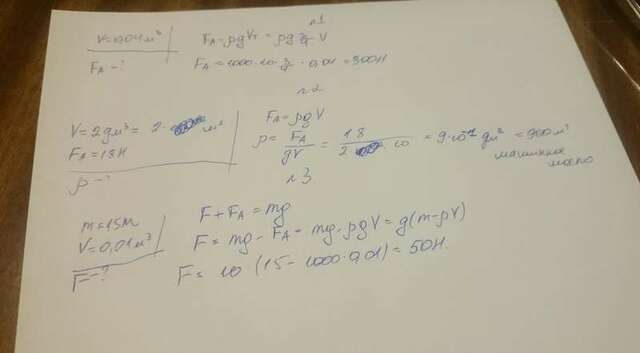 №1
V=0,04м³
F_A-?
F_A=ρgV_т=ρg 3/4 V
F_A=1000·10·3/4·0,04=300Н
№2
V=2дм³=2· м³
F_A=18Н
ρ-?
F_A=ρgV
ρ=F_A/gV=18/2 ·10=9·10⁻¹ дм³=900м³
машинное
масло
№3
m=15м
V=0,01м³
F-?
F+F_A=mg
F=mg-F_A=mg-ρgV=g(m-ρV)
F=10(15-1000·0,01)=50Н.